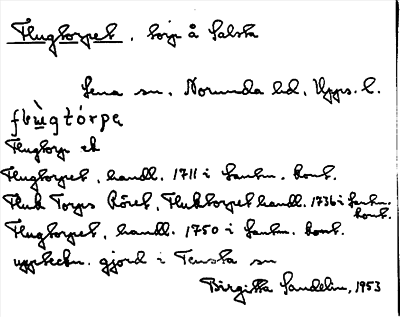 Flugtorpet, torp å Salsta
Lena sn, Norunda hd, Upps. l.
flɯ̀gtórpɐ
Flugtorp ek
Flugtorpet, handl. 1711 i Lantm. kont.
Fluk Torps Röret, Fluktorpet handl. 1736 i Lantm.
kont.
Flugtorpet, handl. 1750 i Lantm. kont.
uppteckn. gjord i Tensta sn
Birgitta Sandelin, 1953